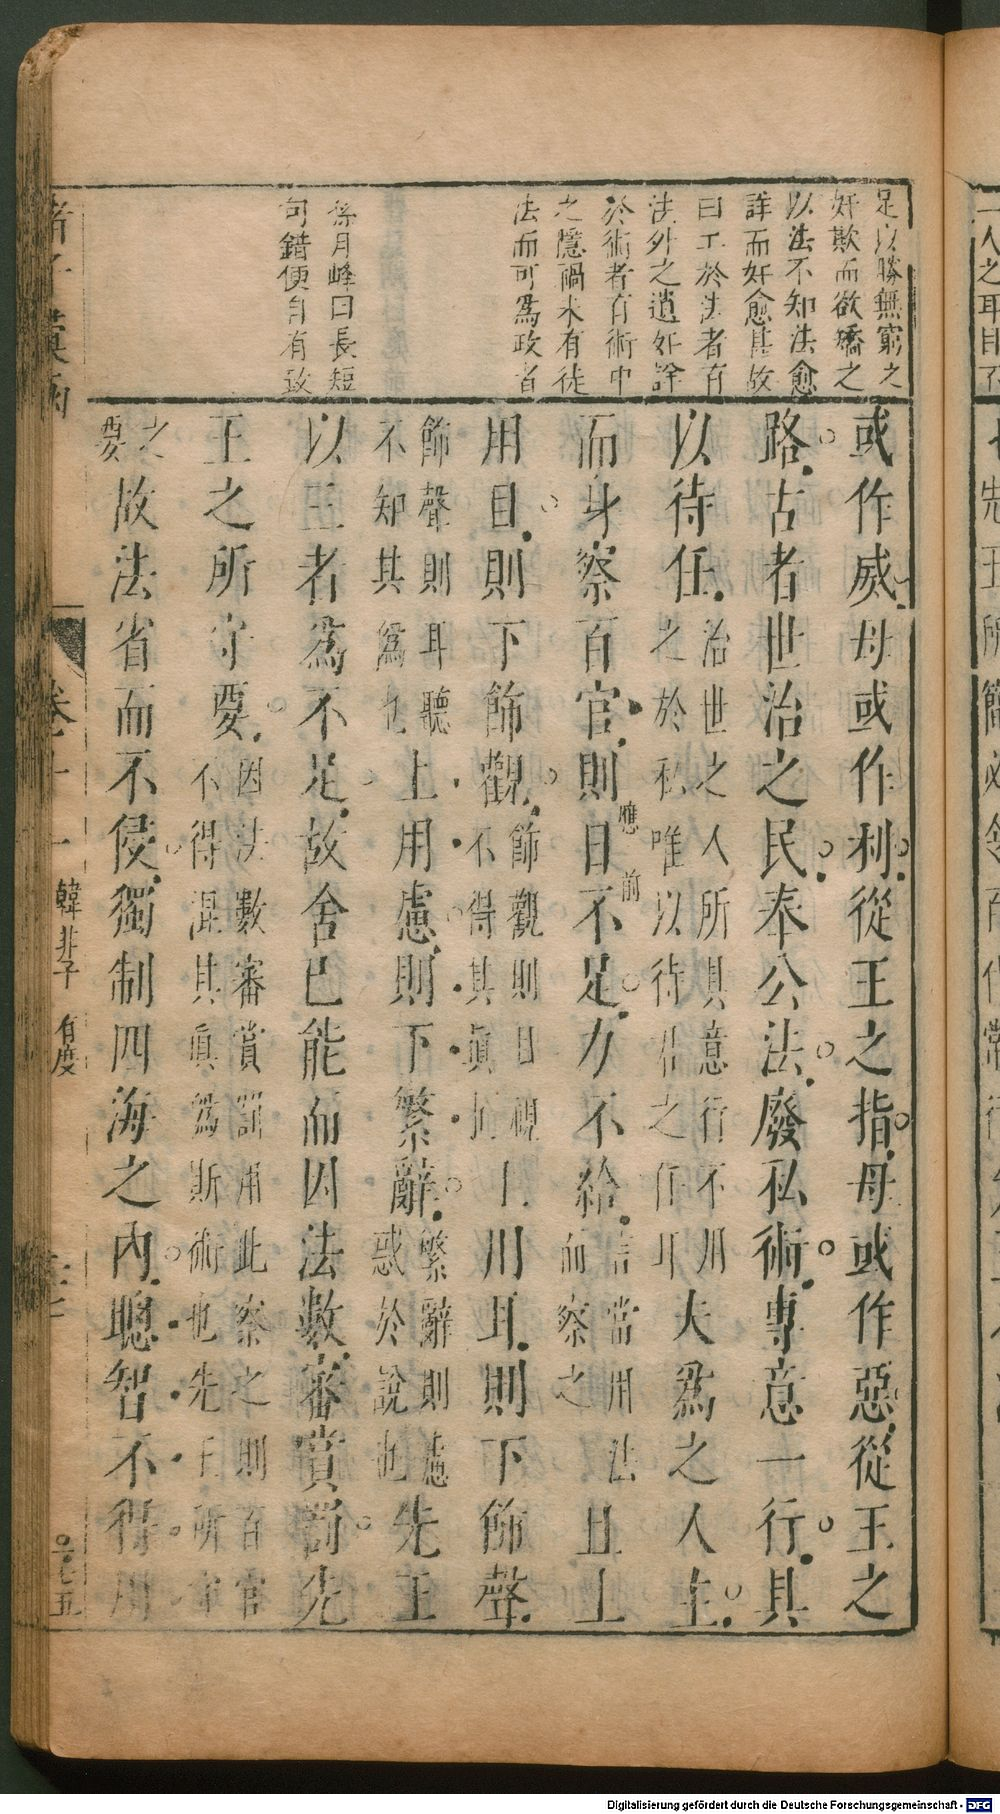 足以勝無窮之
奸欺而欲矯之
以法不知法愈
詳而奸愈甚故
曰工於法者有
法外之遁奸詮
於術者有術中
之隱禍未有徒
法而可爲政者
孫月峰曰長短
句錯便自有致
或作威毋或作利從王之指毋或作惡從王之
路古者世治之民奉公法廢私術專意一行具
以待任治世之人所具意行不用之於私唯以待君之任耳夫爲之人主
而身察百官則日不足力不給言當用法而察之且上
應前
用目則下飾觀飾觀則目視不得其眞也上用耳則下飾聲
飾聲則耳聽不知其爲也上用慮則下繁辭繁辭則慮惑於說也先王
以三者爲不足故舍已能而因法數審賞罰先
王之所守要因法數審賞罰用此察之則百官不得混其眞爲斯術也先王所守
之要故法省而不侵獨制四海之內聰智不得用
諸子彙函
卷十一
韓非子 有度
Digitalisierung gefördert durch die Deutsche Forschungsgemeinschaft - DFG